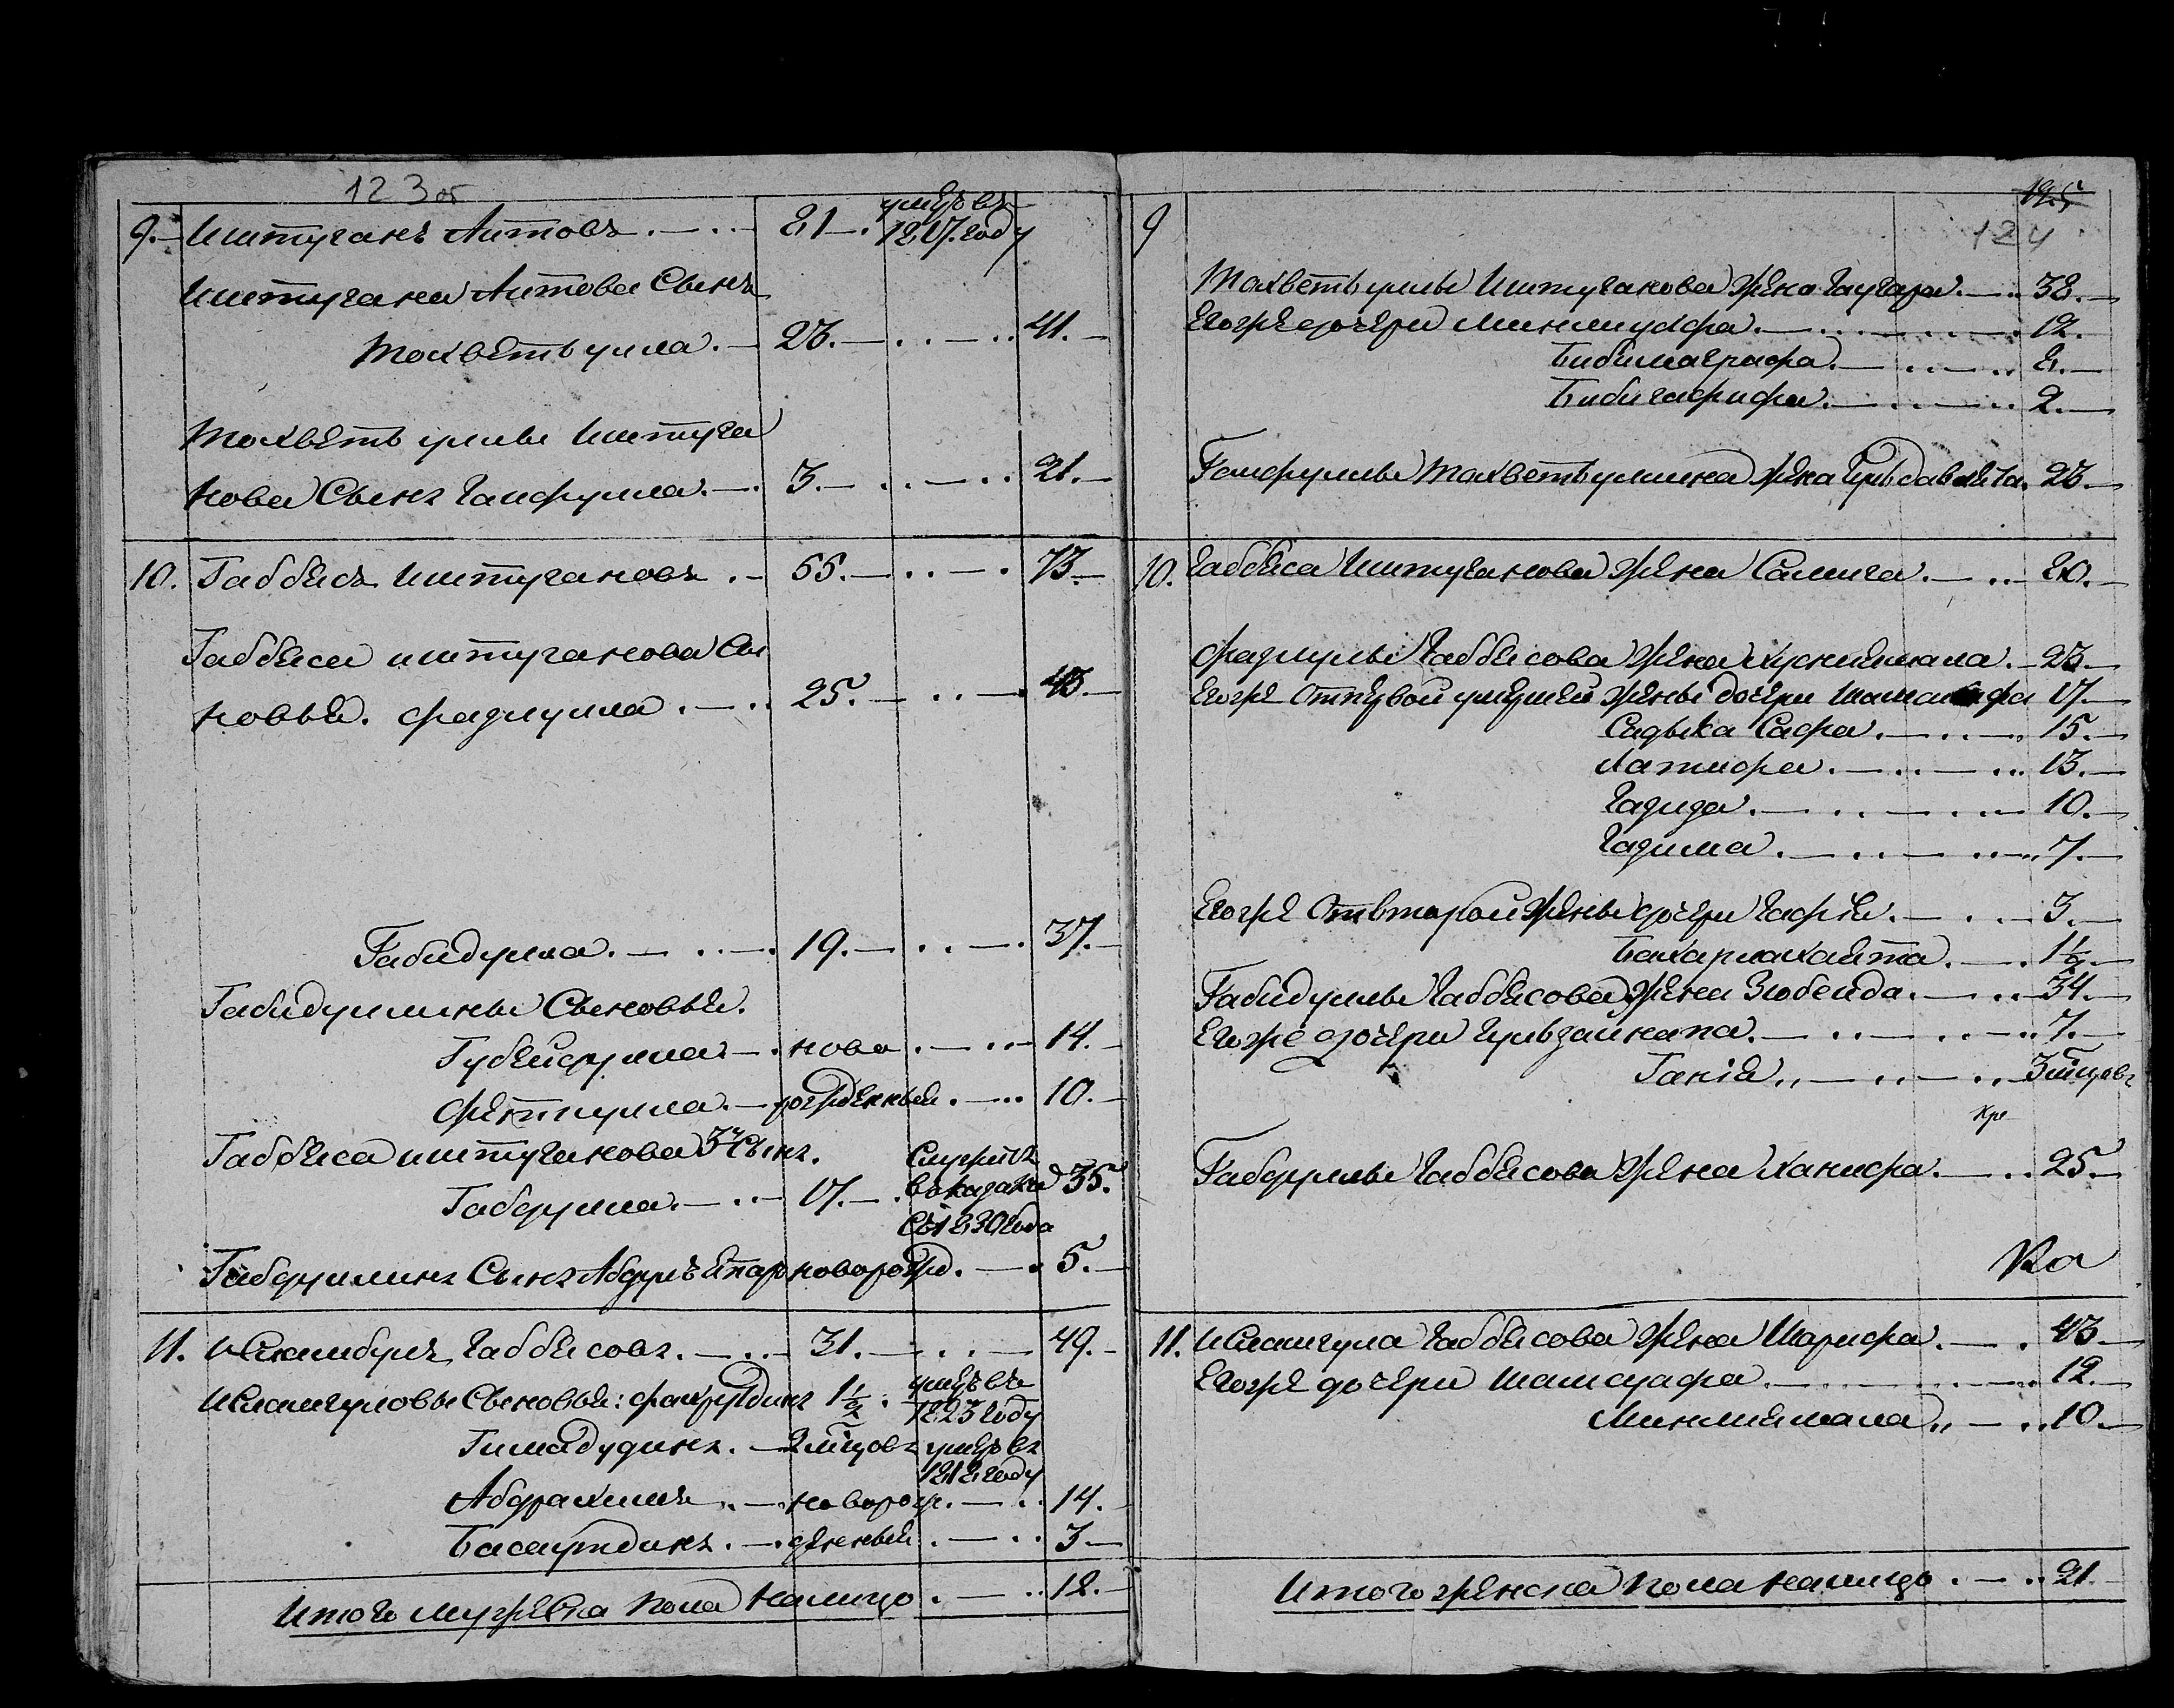 123об
9. Иштуганъ Аитовъ 81. умеръ въ 1817. году
Иштугана Аитова Сынъ
Тохветьулла. 23. 41.
Тохветьуллы Иштуга
нова Сынъ Гайфулла. 3. 21.
10. Габбясъ Иштугановъ 55. 73.
Габбяса иштуганова Сы
новья. фазлулла 25. 43.
Габидулла. 19. 37.
Габидуллины Сыновья.
Губейдулла ново 14.
Фетхулла. рожденныя. 10.
Габбяса иштуганова 3й Сынъ.
Габдулла. 17. Служитъ въ казаках съ 1830 года 35.
Габдуллинъ Сынъ Абдулъ новорожд. 5.
11. Исламгулъ Габбясовъ. 31. 49.
Исламгуловы Сыновья: фахрутдинъ 1½. умеръ въ 1823 году
Гимадудинъ. 2 мѣсцовъ умеръ въ 1818 году
Абдрахимъ новорож 14.
Басаутдинъ. денныя 3
Итого мужеска пола налицо. 12.
125
124
9
Тохветьуллы Иштуганова жена Гаугара. 38.
Егоже дочери Минлиулфа. 12.
Бибимаграфа. 8.
Бибигафифа. 2.
Гайфуллы Тохветьуллина жена Гульдавлета. 23.
10. Габбяса Иштуганова жена Салига. 80.
Фазлуллы Габбясова жена Хуснижамала. 23.
Егоже от первой умершей жены дочери 17.
Садыка Сафа. 15.
Латифа. 13.
Гадида. 10.
Гадима. 7.
Егоже от второй жены дочери Гафія. 3.
1½.
Габидуллы Габбясова жена Зюбейда. 34.
Егоже дочери Гульзайнапа. 7.
Ганія 3 мѣсцовъ
Габдуллы Габбясова жена Ханифа. 25.
11. Исламгула Габбясова жена Шарифа. 43.
Егоже дочери Шамсуафа. 12.
Минлижамала 10.
Итого женска пола налицо 21.